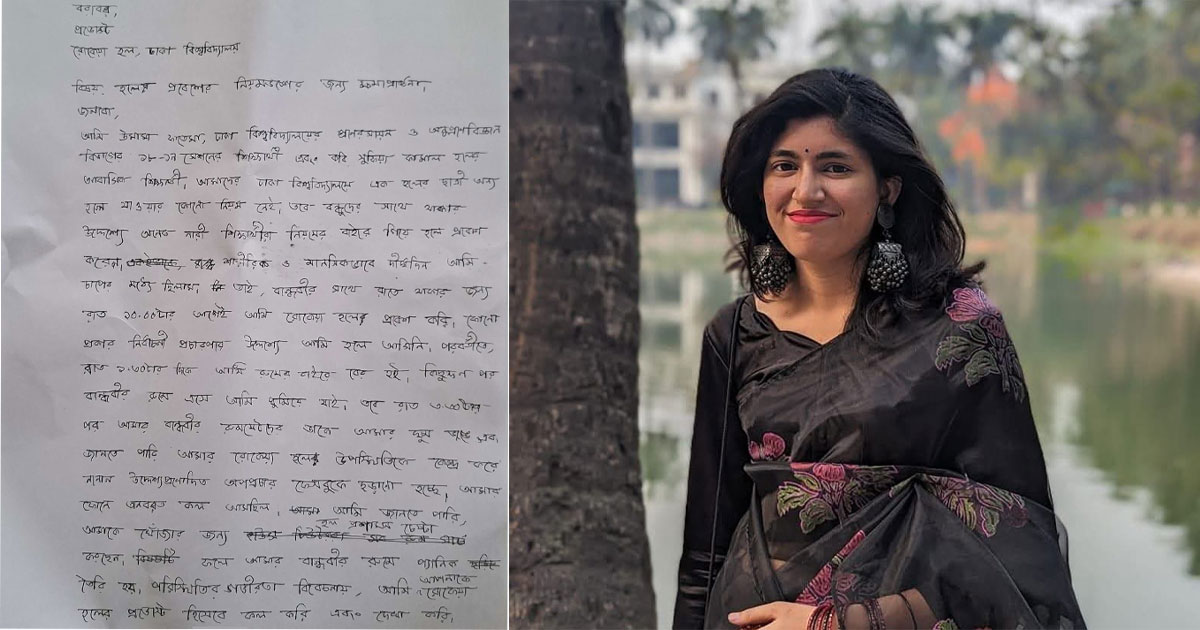 বরাবর,
প্রভোস্ট
রোকেয়া হল, ঢাকা বিশ্ববিদ্যালয়
বিষয়: হলের প্রবেশের নিয়মভঙ্গের জন্য ক্ষমাপ্রার্থনা,
জনাবা,
আমি উমামা ফাতেমা, ঢাকা বিশ্ববিদ্যালয়ের প্রাণরসায়ন ও অনুপ্রাণবিজ্ঞান
বিভাগের ১৮-১৯ সেশনের শিক্ষার্থী এবং কবি সুফিয়া কামাল হলের
আবাসিক শিক্ষার্থী, আমাদের ঢাকা বিশ্ববিদ্যালয়ে এক হলের ছাত্রী অন্য
হলে যাওয়ার কোনো নিয়ম নেই, তবে বন্ধুদের সাথে থাকার
উদ্দেশ্যে অনেক নারী শিক্ষার্থীরা নিয়মের বাইরে গিয়ে হলে প্রবেশ
করেন, শারীরিক ও মানসিকভাবে দীর্ঘদিন আমি
চাপের মধ্যে ছিলাম, তাই, বান্ধবীর সাথে রাতে থাকার জন্য
রাত ১০.০০টার আগেই আমি রোকেয়া হলের প্রবেশ করি, কোনো
প্রকার নির্বাচনী প্রচারণার উদ্দেশ্যে আমি হলে আসিনি, পরবর্তীতে,
রাত ১.৩০টার দিকে আমি রুমের বাইরে বের হই, কিছুক্ষন পর
বান্ধবীর রুমে এসে আমি ঘুমিয়ে যাই, তবে রাত ৩.৩০টার
পর আমার বান্ধবীর রুমমেটদের ডাকে আমার ঘুম ভাঙে এবং
জানতে পারি আমার রোকেয়া হলের উপস্থিতিকে কেন্দ্র করে
নানান উদ্দেশ্যপ্রণোদিত অপপ্রচার ফেসবুকে ছড়ানো হচ্ছে, আমার
ফোনে অনবরত কল আসছিল, আমি জানতে পারি,
আমাকে খোঁজার জন্য হল প্রশাসন চেষ্টা
করছেন, ফলে আমার বান্ধবীর রুমে প্যানিক
তৈরি হয়, পরিস্থিতির গভীরতা বিবেচনায়, আমি আপনাকে রোকেয়া
হলের প্রভোস্ট হিসেবে কল করি এবং দেখা করি,